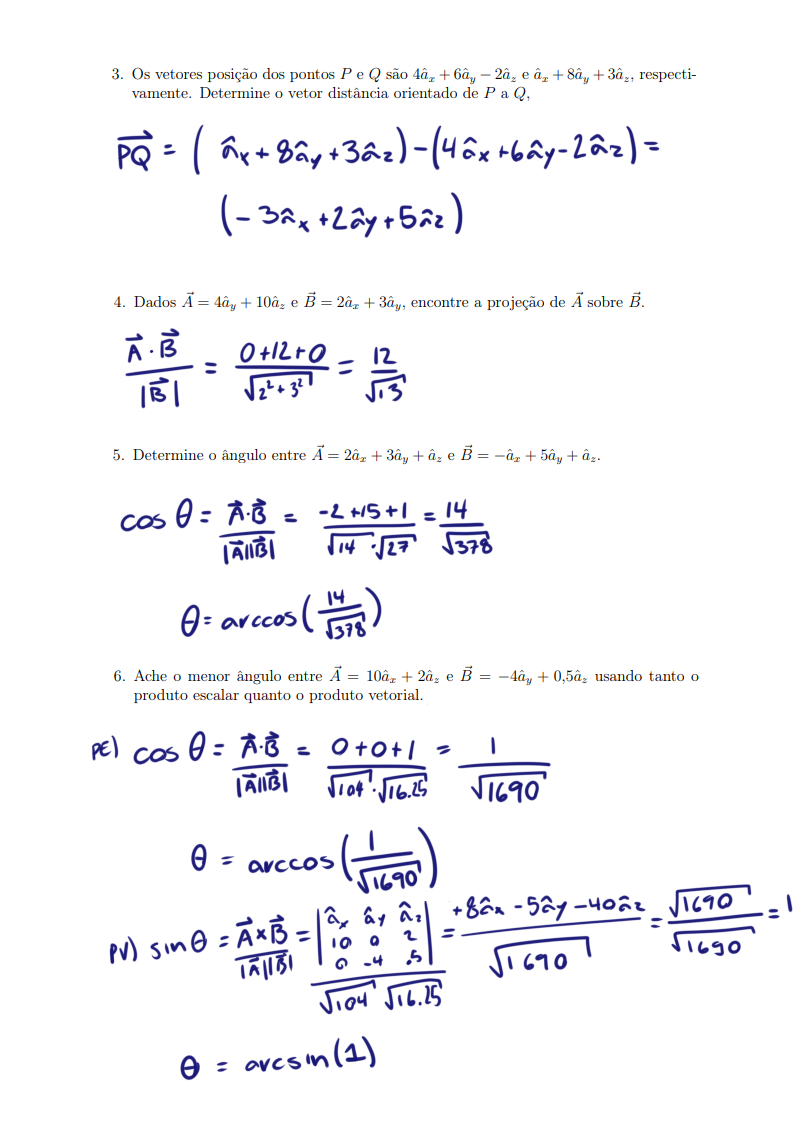 3. Os vetores posição dos pontos P e Q são 4âₓ + 6â_y − 2â_z e âₓ + 8â_y + 3â_z, respecti-
vamente. Determine o vetor distância orientado de P a Q,
\overrightarrow{PQ} = ( âₓ + 8â_y + 3â_z) − (4âₓ + 6â_y − 2â_z) =
(− 3âₓ + 2â_y + 5â_z)
4. Dados \vec{A} = 4â_y + 10â_z e \vec{B} = 2âₓ + 3â_y, encontre a projeção de \vec{A} sobre \vec{B}.
\frac{\vec{A} · \vec{B}}{|\vec{B}|} = \frac{0+12+0}{\sqrt{2² + 3²}} = \frac{12}{\sqrt{13}}
5. Determine o ângulo entre \vec{A} = 2âₓ + 3â_y + â_z e \vec{B} = −âₓ + 5â_y + â_z.
cos θ = \frac{\vec{A}·\vec{B}}{|\vec{A}||\vec{B}|} = \frac{-2+15+1}{\sqrt{14} · \sqrt{27}} = \frac{14}{\sqrt{378}}
θ = arccos(\frac{14}{\sqrt{378}})
6. Ache o menor ângulo entre \vec{A} = 10âₓ + 2â_z e \vec{B} = −4â_y + 0,5â_z usando tanto o
produto escalar quanto o produto vetorial.
PE) cos θ = \frac{\vec{A}·\vec{B}}{|\vec{A}||\vec{B}|} = \frac{0+0+1}{\sqrt{104} · \sqrt{16.25}} = \frac{1}{\sqrt{1690}}
θ = arccos(\frac{1}{\sqrt{1690}})
PV) sin θ = \frac{\vec{A}×\vec{B}}{|\vec{A}||\vec{B}|} = \frac{\begin{vmatrix} âₓ & â_y & â_z \\ 10 & 0 & 2 \\ 0 & -4 & .5 \end{vmatrix}}{\sqrt{104} \sqrt{16.25}} = \frac{+8âₓ − 5â_y − 40â_z}{\sqrt{1690}} = \frac{\sqrt{1690}}{\sqrt{1690}} = 1
θ = arcsin(1)